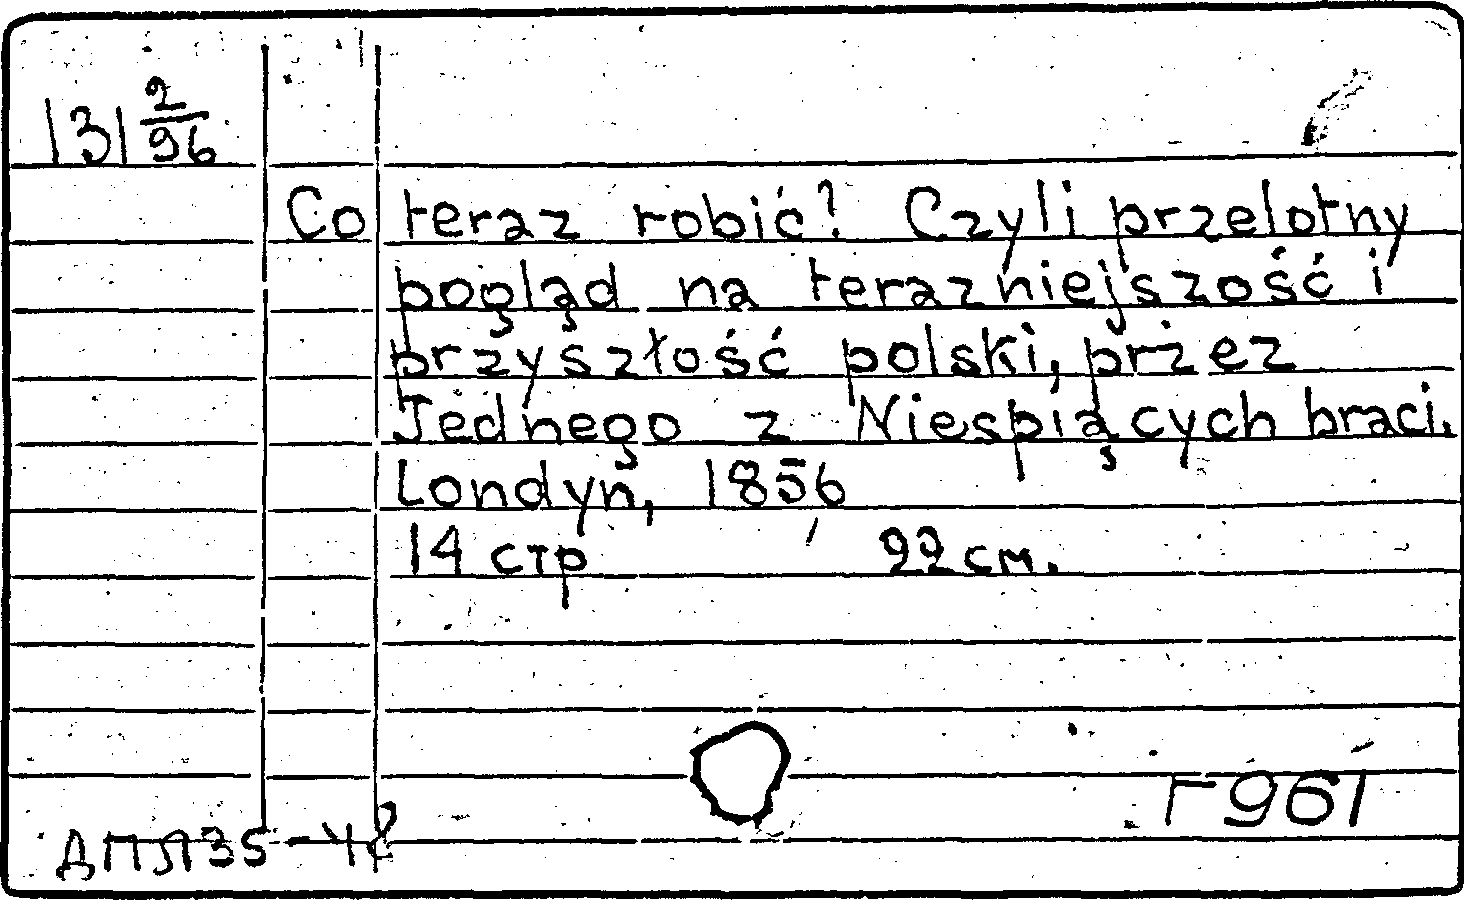 131 2/96
Co teraz robić? Czyli przelotny
pogląd na terazniejszość i
przyszłość polski, przez
Jednego z Niespiących braci.
Londyn, 1856
14 стр 22 см.
Г 961
ДПЛ35-48